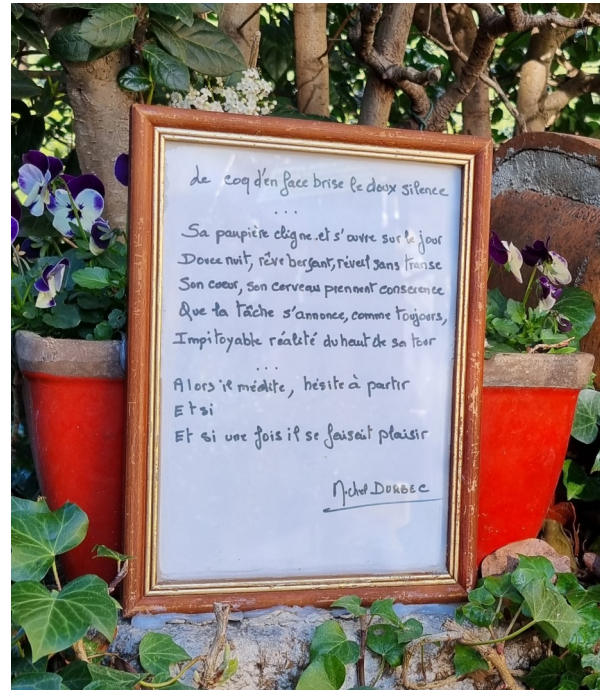 de coq d'en face brise le doux silence
...
Sa paupière cligne et s'ouvre sur le jour
Douce nuit, rêve berçant, réveil sans transe
Son coeur, son cerveau prennent conscience
Que la tâche s'annonce, comme toujours,
Impitoyable réalité du haut de sa tour
...
Alors il médite, hésite à partir
Et si
Et si une fois il se faisait plaisir
Michel DURBEC